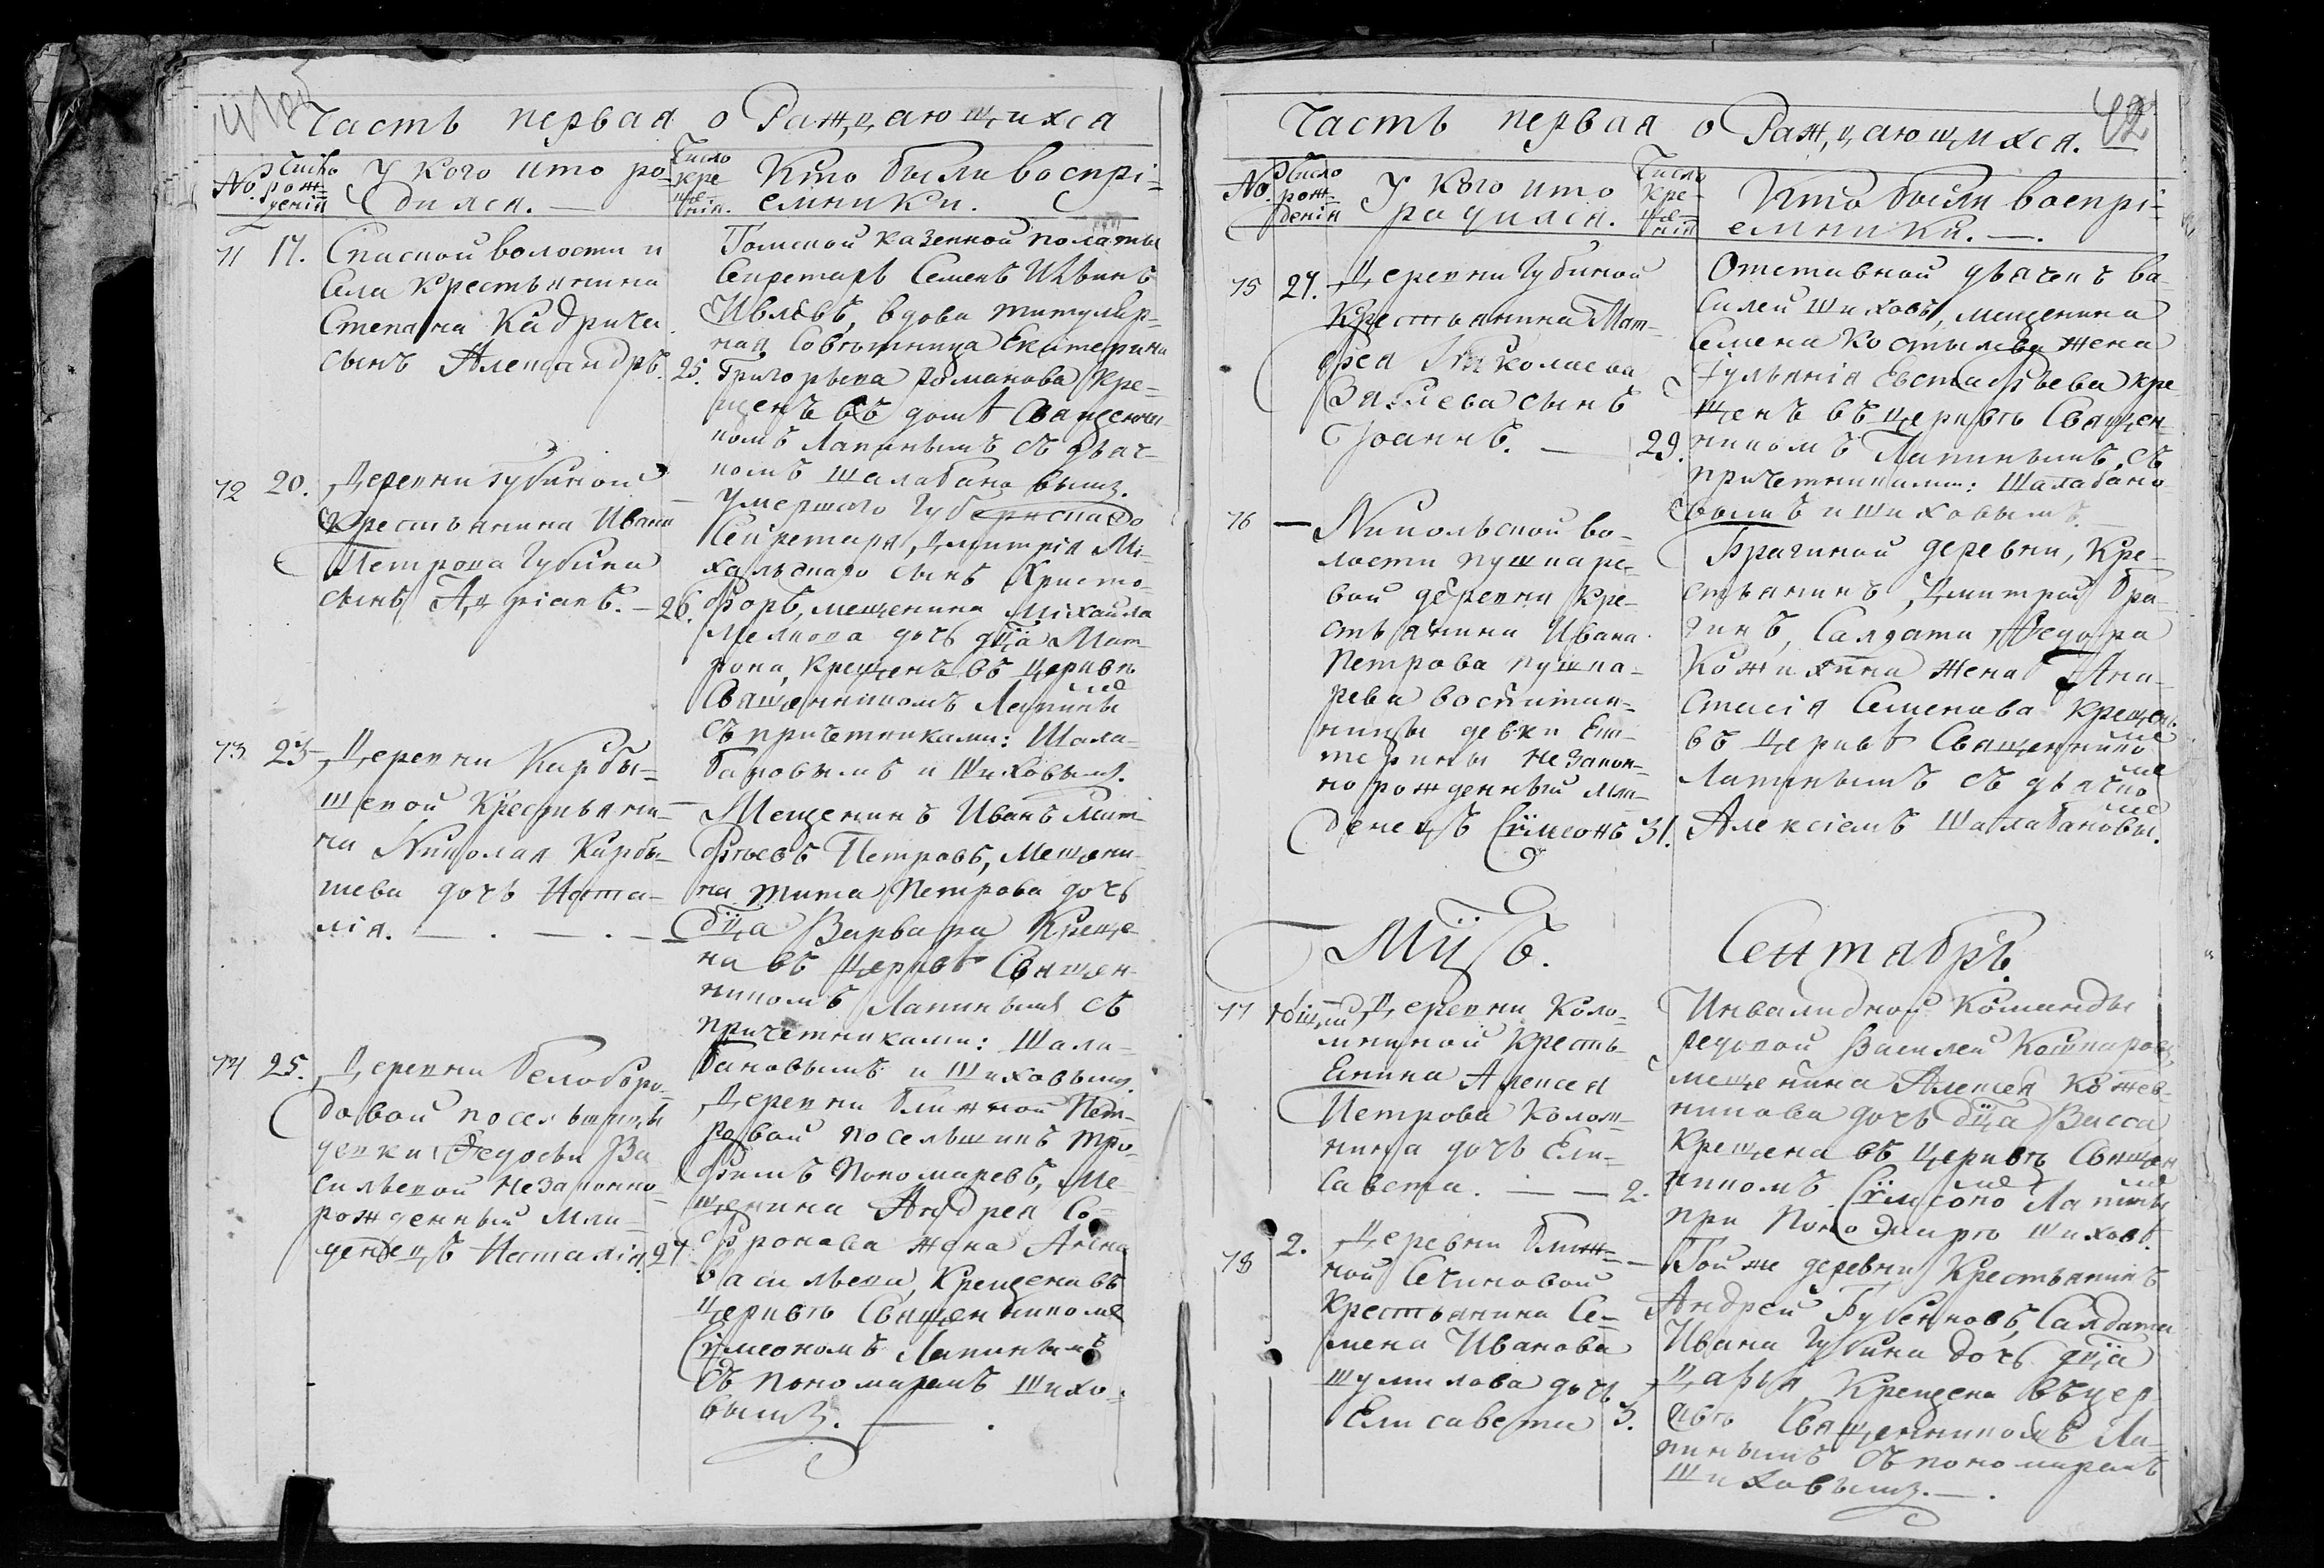 Часть первая о Раждающихся
No.
Число рож=
денія
У кого кто ро=
дился. —
Число
кре
ще=
нія.
Кто были воспрі=
емники.
71 17. Спаской волости и
села Крестьянина
Степана Кадрича
сынъ Александръ. 25.
Томской казенной полаты
Секретарь Семенъ
Ивлевъ, вдова титуляр=
ная Советница Екатерина
Григорьева Романова, кре=
щенъ въ доме Священни
комъ Лапинымъ съ дьяч=
комъ Шалабановымъ.
72 20. Деревни Губиной
Крестьянина Ивана
Петрова Губина
сынъ Адріанъ. — 26.
Умершаго Губернскаго
Секретаря, Дмитрія Мі=
хальскаго сынъ Христо=
форъ, мещенина Міхайла
Мелкова дочь дца Мат=
рона, Крещенъ въ церкве
Священникомъ Лапины
съ причетниками: Шала=
бановымъ и Шиховымъ.
73 23 Деревни Карбы=
шевой Крестьяни=
на Николая Карбы=
шева дочь Ната=
лія. — . — . —
Мещенинъ Иванъ Мат=
фѣевъ Петровъ, Мещени=
на Тита Петрова дочь
дца Варвара Креще=
на въ церкве Священ=
никомъ Лапинымъ съ
причетниками: Шала=
бановымъ и Шиховымъ.
74 25. Деревни Белоборо=
довой посельщицы
девки Федосьи Ва
сильевой незаконно=
рожденный мла=
денецъ Наталія. 27.
Деревни ближной Пет=
ровой посельщикъ Тро=
фимъ Пономаревъ, Ме=
щенина Андрея Со=
фронова жена Анна
Васильева, Крещена въ
церкве Священникомъ
Сѵмеономъ Лапинымъ
Съ пономаремъ Шихо=
вымъ. —
Часть первая о Раждающихся.
42
No.
Число
рож=
денія
У кого кто
родился.
Число
кре=
ще=
нія
Кто были воспрі=
емники. —
75 27. Деревни Губиной
Крестьянина Мат=
фея Николаева
Зяблева сынъ
Іоаннъ. — 29.
Отставной дьячекъ Ва=
силей Шиховъ, мещенина
Семена Костылева жена
Іульянія Евстафьева кре
щенъ въ церкве Священ=
никомъ Лапинымъ, съ
причетниками: Шалабано
вымъ и Шиховымъ.
76 — Никольской во=
лости пушкаре=
вой деревни кре=
стьянина Ивана
Петрова пушка=
рева воспитан=
ницы девки Ека=
терины незакон=
норожденный мла=
денецъ Сѵмеонъ 31.
Брагиной деревни, Кре=
стьянинъ, Дмитрей Бра=
гинъ, Салдата Федора
Кожихина жена Ана=
стасія Семенова Крещенъ
въ церкве Священнико
Лапинымъ съ дьячко
Алексіемъ Шалабановы.
Мцъ. Сентябрь.
77 Деревни Коло=
мниной Кресть=
енина Алексея
Петрова Колом=
нина дочь Ели=
савета. — — 2.
Инвалидной Команды
редовой Василей Кашкаровъ,
мещенина Алексея Кожев=
никова дочь дца Васса
Крещена въ церкве Священ
никомъ Сѵмеоно Лапины
при Пономаре Шихове.
78 2. Деревни ближ=
ной Сечиновой
Крестьянина Се=
мена Иванова
Шумилова дочь
Елисавета 3.
Той же деревни Крестьянинъ
Андрей Бубенновъ, Салдата
Ивана Губина дочь дца
Дарья, Крещена въ цер
кве Священникомъ Ла=
пинымъ съ пономаремъ
Шиховымъ. — .